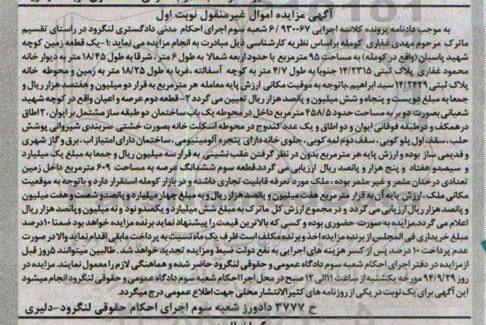 آگهی مزایده اموال غیرمنقول نوبت اول
به موجب دادنامه پرونده کلاسه اجرایی ۹۳۰۰۶۷/۶ شعبه سوم اجرای احکام مدنی دادگستری لنگرود در راستای تقسیم
ماترک مرحوم مهدی غفاری کومله براساس نظریه کارشناسی ذیل مبادرت به انجام مزایده می نماید: ۱-یک قطعه زمین کوچه
شهید پاسبان (واقع در کومله) به مساحت ۹۵ مترمربع با حدود اربعه شمالا به طول ۶ متر، شرقا به طول ۱۸/۴۵ متر به دیوار خانه
محمود غفاری پلاک ثبتی ۱۴/۲۳۱۵ جنوبا به طول ۴/۷ متر به کوچه آسفالته غربا به طول ۱۸/۲۵ متر به زمین و محوطه خانه
پلاک ثبتی ۱۴/۲۴۲۹ سید ابراهیم، باتوجه به موقیت مکانی ارزش پایه معامله هر مترمربع به قرار دو میلیون و هفتصد هزار ریال و
جمعا به مبلغ دویست و پنجاه و شش میلیون و پانصد هزار ریال تعیین می گردد ۲- قطعه دوم عرصه و اعیان واقع در کوچه شهید
شعبانی بصورت دو بر به مساحت حدود ۴۵۸/۵ مترمربع داخل در محوطه یک باب ساختمان دو طبقه ساز مشتمل بر ایوان، ۲ اطاق
در همکف و در طبقه فوقانی ایوان و دو اطاق و یک عدد کندوج در محوطه اسکلت خانه بصورت خشتی سربندی شیروانی پوشش
حلب، سقف اول پلو کوبی، سقف دوم لمه کوبی، جلوی خانه دارای پنجره آلومینیومی، ساختمان دارای امتیاز آب، برق و گاز شهری
و قدیمی ساز بوده و ارزش پایه هر مترمربع بدون در نظر گرفتن عقب نشینی به قرار سه میلیون ریال و جمعا به مبلغ یک میلیارد
و سیصدو هفتاد و پنج هزار و پانصد ریال ارزیابی می گردد. قطعه سوم ششدانگ عرصه به مساحت ۶۰۹ مترمربع داخل زمین
تعدادی درختان مثمر و غیر مثمر بوده، ملک مورد تعرفه قابلیت تجاری داشته و در بازار کومله استقرار دارد و باتوجه به موقعیت
مکانی ملک، ارزش پایه آن به قرار مترمربع هفت میلیون و پانصد هزار ریال و به مبلغ چهار میلیارد و پانصدو شصت و هفت میلیون
و پانصد هزار ریال ارزیابی می گردد و در مجموع ارزش کل ماترک به مبلغ شش میلیارد و یکصدو نود و نه میلیون و پانصد هزار ریال
اعلام می گردد. مزایده به صورت حضوری بوده و کسی که بالاترین قیمت را پیشنهاد نماید برنده مزایده خواهد بود ضمنا ۱۰ درصد
مبلغ خریداری فی المجلس از برنده مزایده اخذ و برنده مکلف است ظرف یک ماه نسبت به پرداخت مابقی اقدام نماید والا در صورت
عدم پرداخت ۱۰ درصد پس از کسر هزینه های اجرایی به نفع دولت ضبط و مزایده تجدید خواهد شد. طالبین میتوانند ۵ روز قبل
از مزایده در دفتر اجرای احکام شعبه سوم دادگاه عمومی و حقوقی لنگرود حاضر شده و هماهنگی لازم را معمول نمایند. مزایده در
روز ۹۴/۹/۲۹ مورخه یکشنبه از ساعت ۱۱ الی ۱۲ صبح در محل اجرا احکام شعبه سوم دادگاه عمومی و حقوقی لنگرود انجام میشود
این آگهی برای یک نوبت در یکی از روزنامه های کثیرالانتشار محلی جهت اطلاع عمومی درج میگردد.
ح ۳۷۷۷ دادورز شعبه سوم اجرای احکام حقوقی لنگرود-دلیری